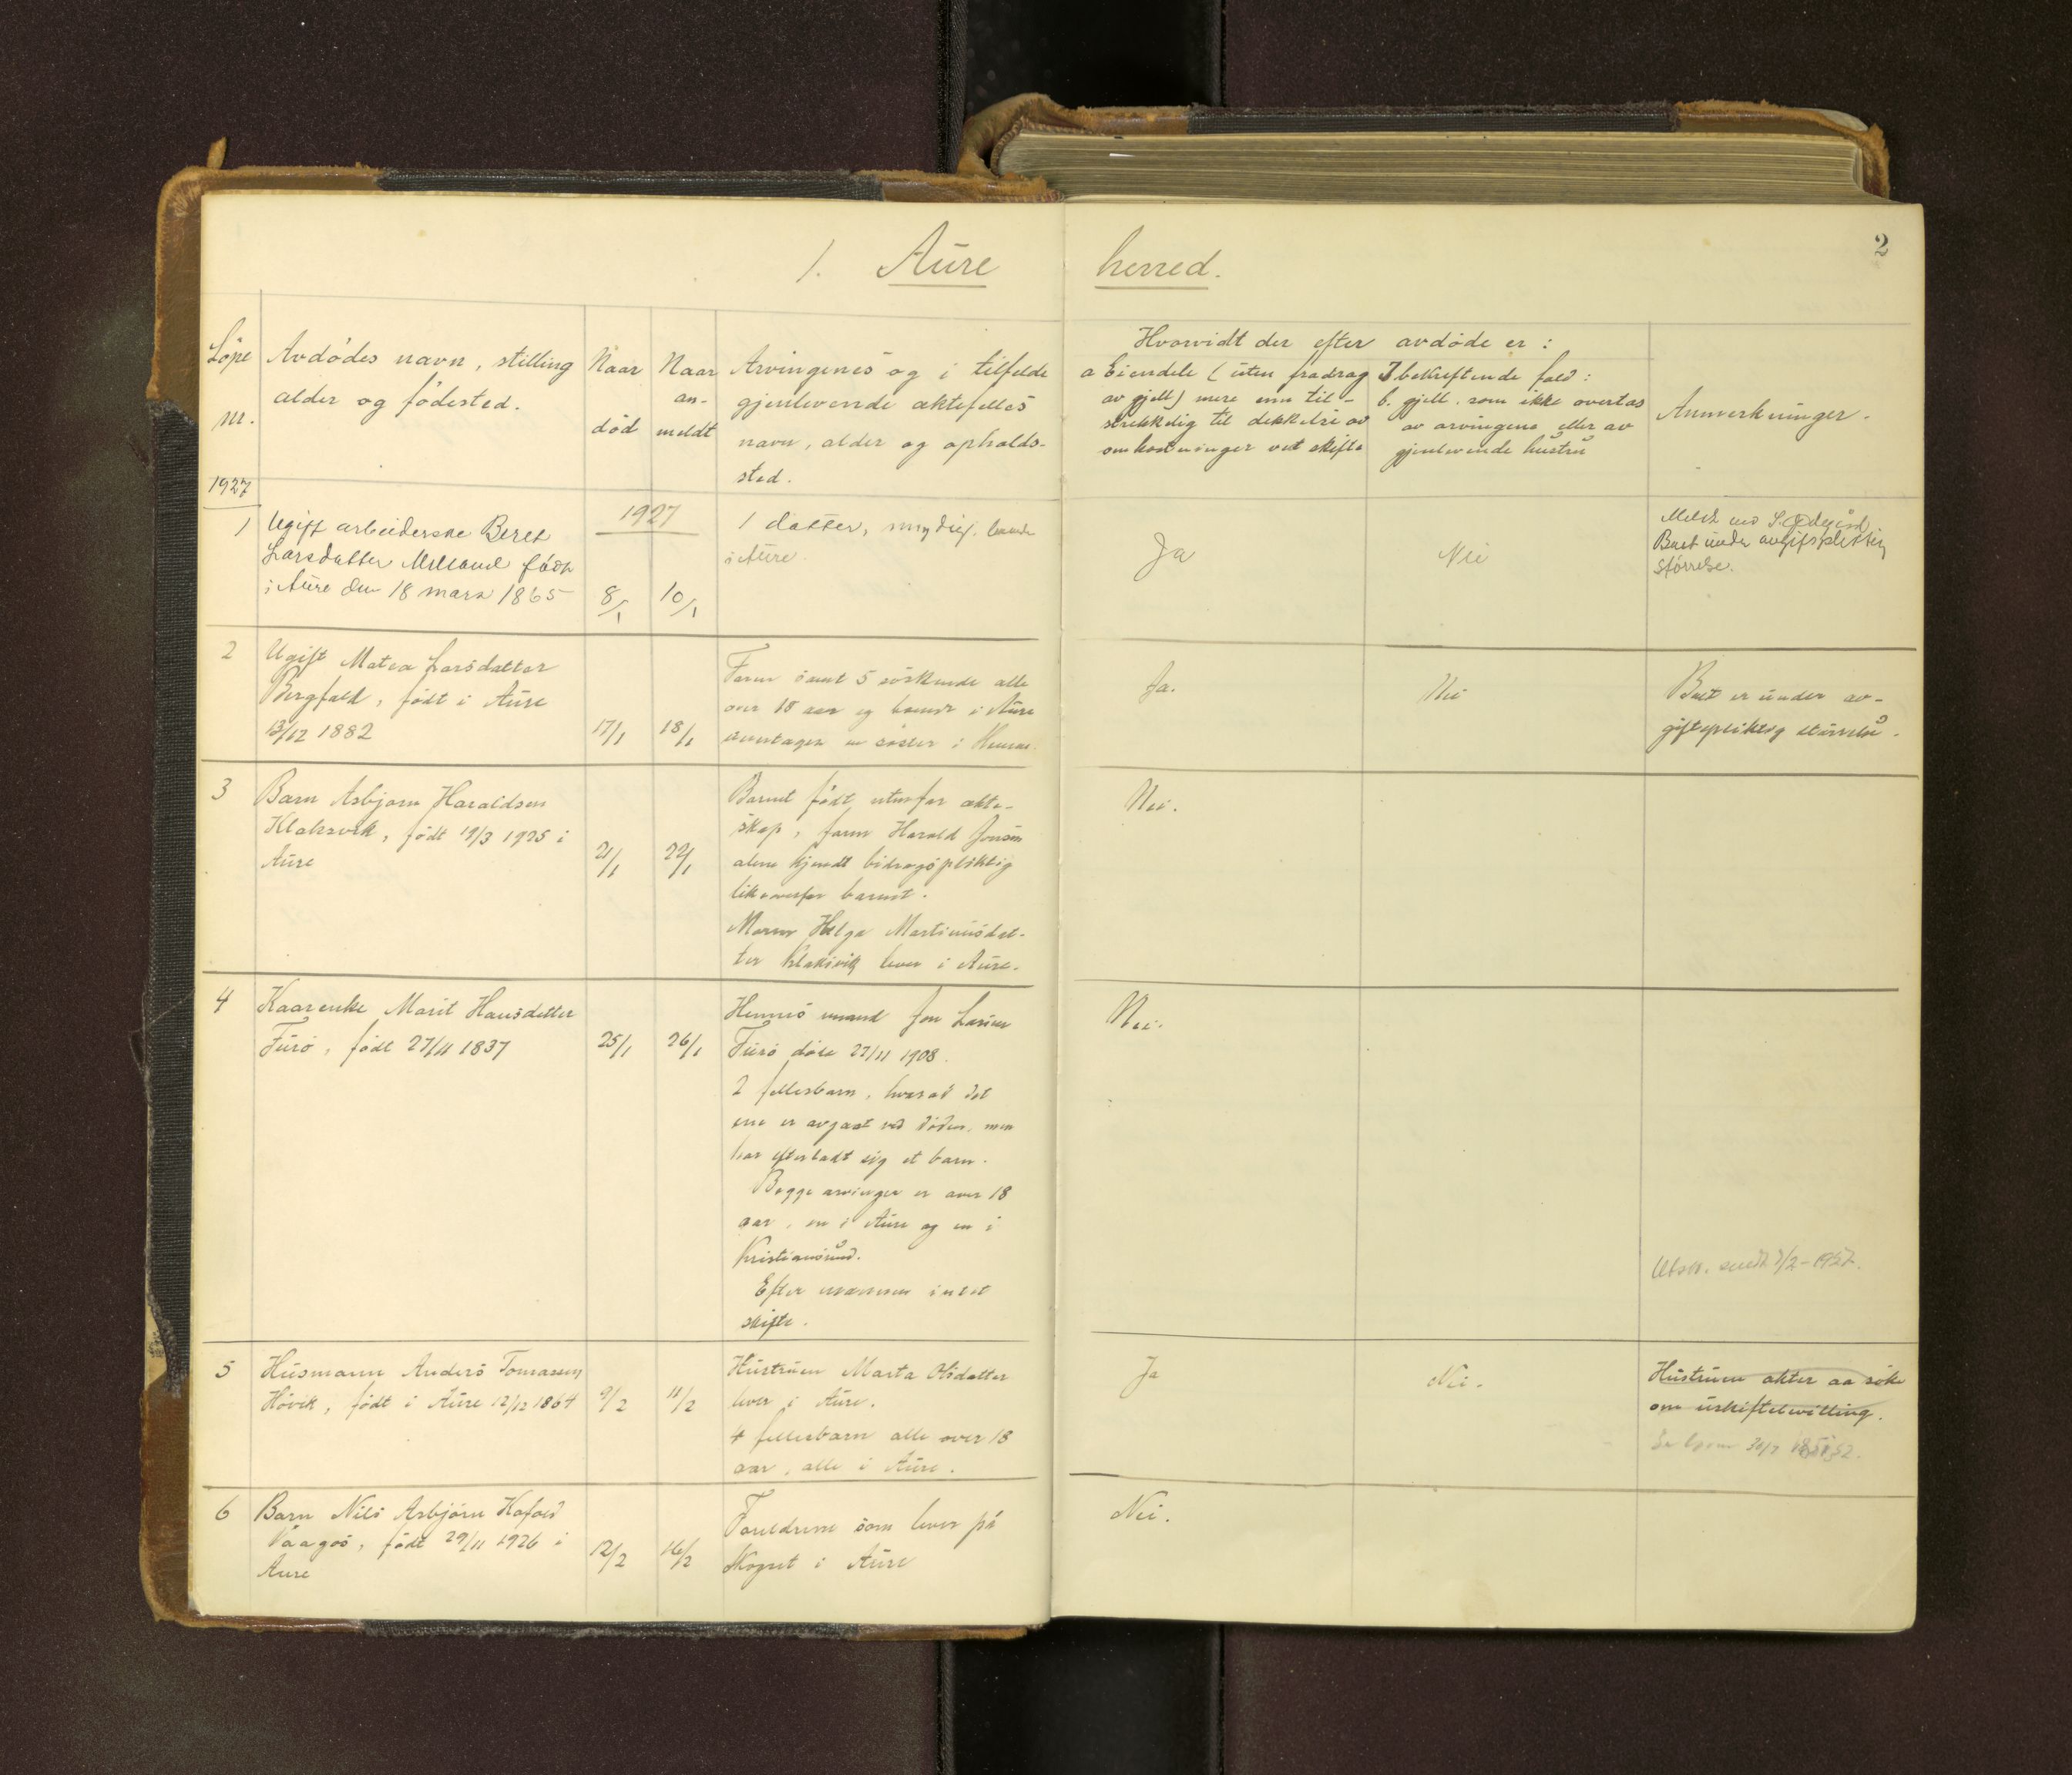 2
1. Aure herred.
Löpe nr.
Avdødes navn, stilling
alder og fødested.
Naar død
Naar an-
meldt
Arvingenes og i tilfelde
gjenlevende aktefelles
navn, alder og opholds-
sted.
Hvorvidt der efter avdøde er :
a Eiendele (uten fradrag
av gjell) mere enn til-
strekkelig til dekkelse av
omkostninger ved skifte
I bekreftende fald :
b. gjell. som ikke overtas
av arvingene eller av
gjenlevende hustru
Anmerkninger.
1927
1
Ugift arbeiderske Beret
Larsdatter født
i Aure den 18 mars 1865
1927
8/1
10/1
1 datter, myndig,
i Aure
Ja
Nei
Meldt
Boet under avgiftspliktig
størrelse.
2
Ugift Matea Larsdatter
Bergfald, født i Aure
13/12 1882
17/1
18/1
Faren samt 5 søskende alle
over 18 aar og i Aure
en søster i
Ja.
Nei
Boet er under av-
giftspliktig størrelse.
3
Barn Asbjørn Haraldsen
Klaksvik, født 19/3 1925 i
Aure
21/1
22/1
Barnet født utenfor ekte-
skap, faren Harald Jonsen
alene kjendt bidragspliktig
likeoverfor barnet.
Moren Helga Martinusdat-
ter Klaksvik lever i Aure.
Nei.
4
Kaarenke Marit Hansdatter
Furø, født 27/11 1837
25/1
26/1
Hennes mand Jon Larsen
Furø døde 27/11 1908.
2 fellesbarn, hvorav det
ene er avgaat ved døden, men
har efterladt sig et barn.
Begge arvinger er over 18
aar, en i Aure og en i
Kristiansund.
Efter mannen intet
skifte.
Nei.
Utskr. sendt 3/2-1927.
5
Husmann Anders Tomassen
Hovik, født i Aure 12/12 1864
9/2
11/2
Hustruen Marta Olsdatter
lever i Aure.
4 fellesbarn alle over 18
aar, alle i Aure.
Ja
Nei.
Hustruen akter aa søke
om uskiftebevilling.
6
Barn Nils Asbjørn Hafold
Vaagos, født 29/11 1926 i
Aure
12/2
16/2
Foreldrene som lever på
Skogset i Aure
Nei.